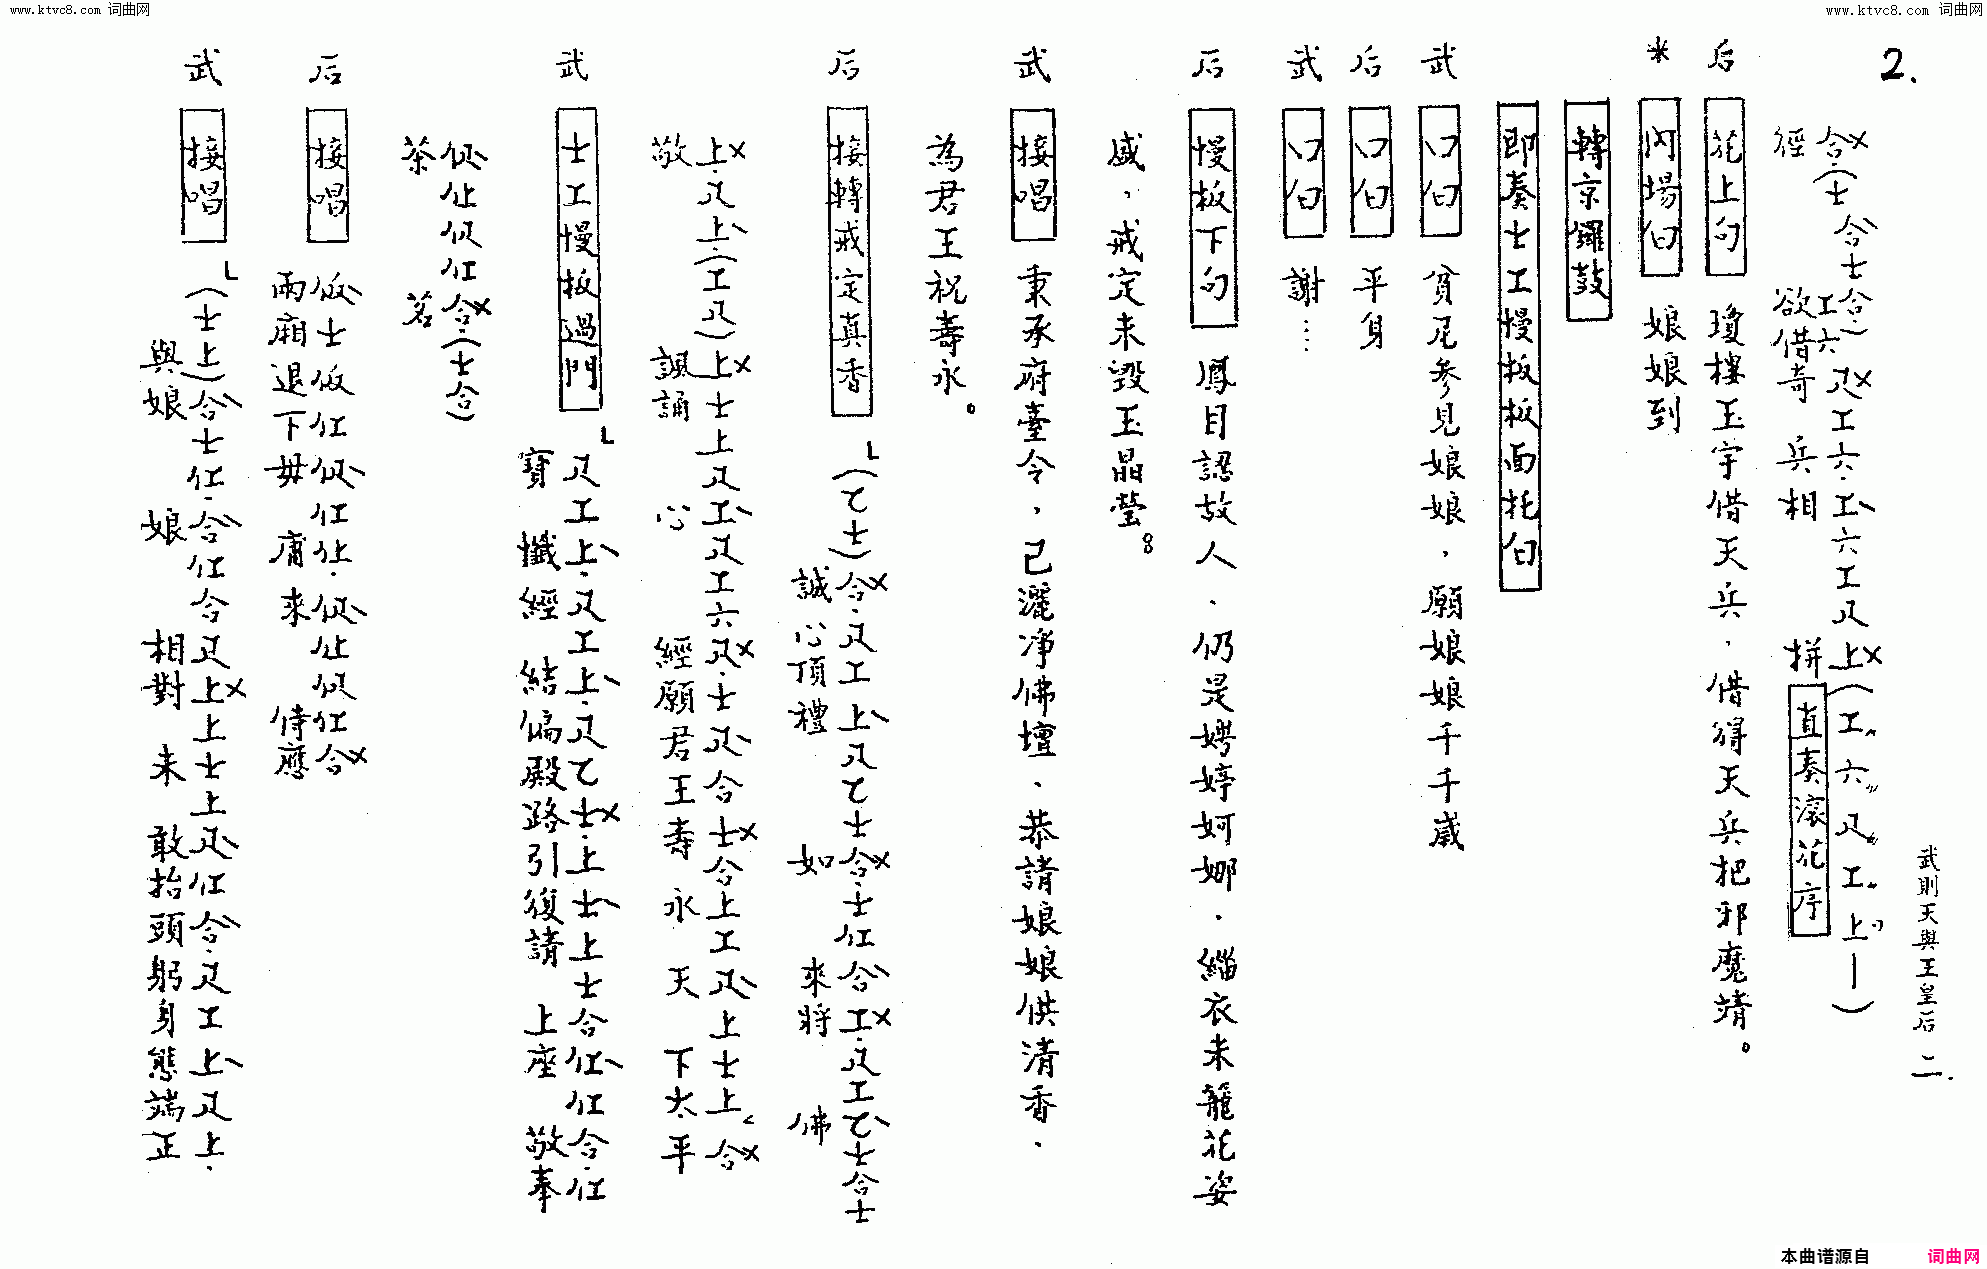 www.ktvc8.com 词曲网
www.ktvc8.com 词曲网
2.
武則天與王皇后 二.
合(士合士合)工六反工六.工六工反上(工六反工上—)
徑 欲借奇 兵相 拼 直奏滾花序
后 花上句 瓊樓玉宇借天兵．借得天兵把邪魔靖。
* 內場白 娘娘到
轉京鑼鼓
即奏士工慢板板面托白
武 口白 貧尼參見娘娘，願娘娘千千歲
后 口白 平身
武 口白 謝……
后 慢板下句 鳳目認故人．仍是娉婷婀娜．緇衣未籠花姿
威，戒定未毀玉晶瑩。
武 接唱 秉承府臺令，已灑淨佛壇、恭請娘娘供清香．
為君王祝壽永。
后 接轉戒定真香 (乙士)合.反工上反乙士合.士仜合工.反工乙士合士
誠心頂禮 如 來將 佛
上.反上(工反)上士上反工反工六反.士反合士合上工反上士上合
敬 諷誦 心 經願君王壽永 天 下太平
武 士工慢板過門 反工上.反工上.反乙士.上士上士合仜仜合.仜
寶 懺經 結偏殿路引復請 上座 敬奉
伬仩伬仜合.(士合)
茶 茗
后 接唱 伬士伬仜伬仜仩.伬仩伬仜合
兩廂退下毋 庸來 侍應
武 接唱 (士上)合士仜.合仜合反上上士上反仜合.反工上反上.
與娘 娘 相對 未 敢抬頭躬身態端正
本曲谱源自 词曲网